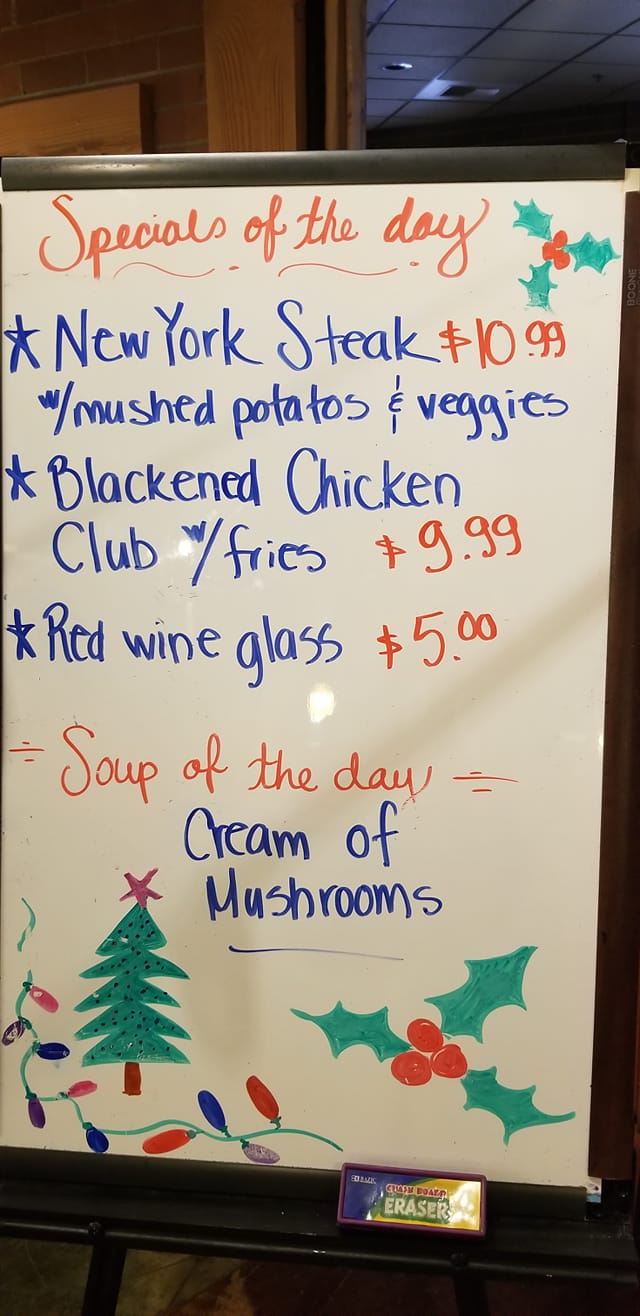 Specials of the day
★ New York Steak $10.99
w/mushed potatos & veggies
★ Blackened Chicken
Club w/fries $9.99
★ Red wine glass $5.00
÷ Soup of the day ÷
Cream of
Mushrooms
BOONE
BAZIC
ERASER